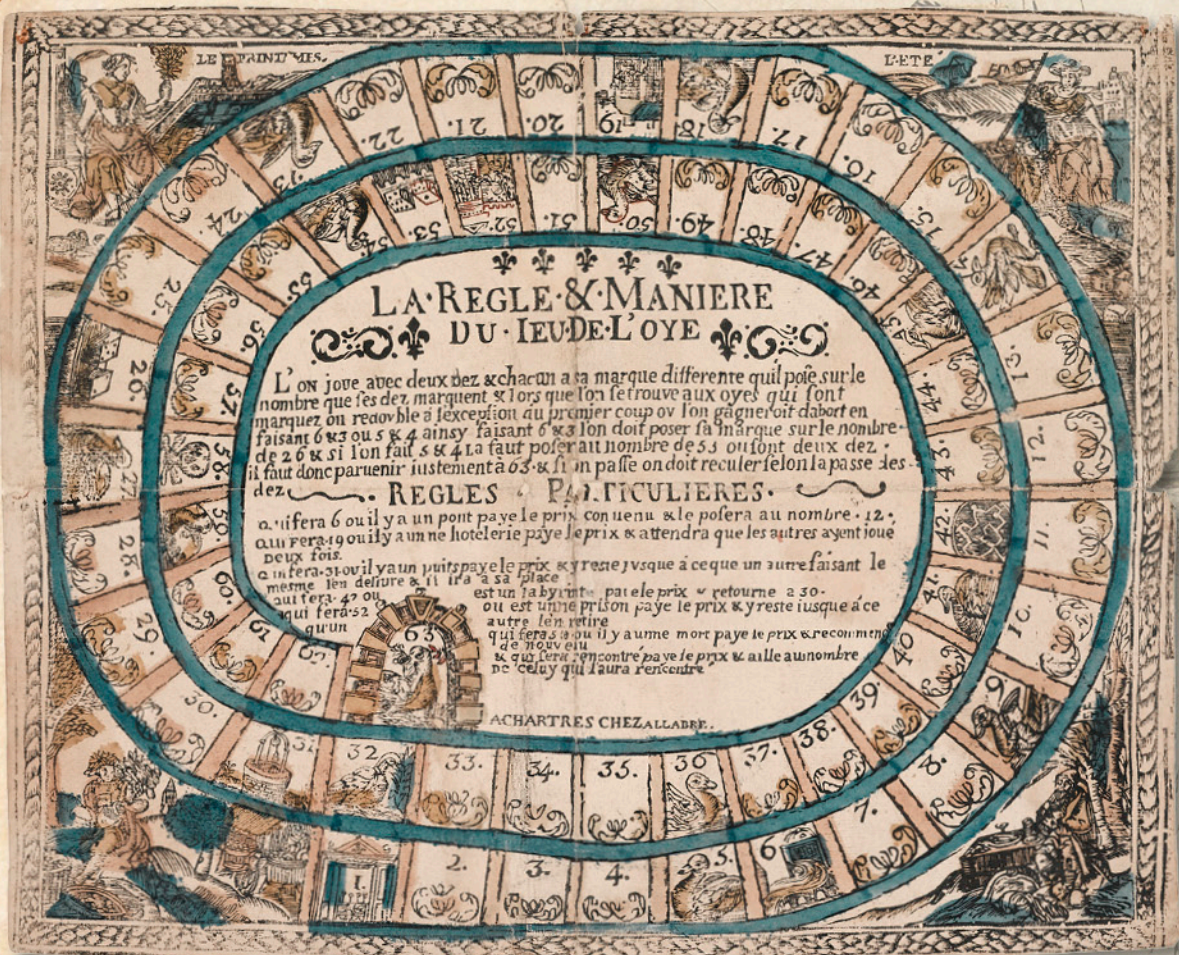 LE PRINTMIS.
L'ETÉ
LA·REGLE·&·MANIERE
DU·IEU·DE·L'OYE
L'on joue avec deux dez & chacun a sa marque differente quil pose sur le
nombre que ses dez marquent & lors que l'on se trouve aux oyes qui sont
marquez on redouble a lexception du premier coup ou l'on gagneroit dabort en
faisant 6 & 3 ou 5 & 4 ainsy faisant 6 & 3 l'on doit poser sa marque sur le nombre
de 26 & si l'on fait 5 & 4 la faut poser au nombre de 53 ou sont deux dez
il faut donc paruenir iustement à 63 & si on passe on doit reculer selon la passe des
dez
REGLES PARTICULIERES.
qui fera 6 ou il y a un pont paye le prix conuenu & le posera au nombre · 12 ·
qui fera 19 ou il y a unne hotelerie paye le prix & attendra que les autres ayent joue
deux fois.
qui fera 31 ou il y a un puits paye le prix & y reste jusque à ce que un autre faisant le
mesme len deliure & il ira a sa place
qui fera 47 ou est un labyrinte paie le prix & retourne a 30·
qui fera 52 ou est unne prison paye le prix & y reste iusque á ce
qu'un autre len retire
qui fera 58 ou il y a unne mort paye le prix & recommen
de nouveau
& qui sera rencontré paye le prix & aille au nombre
de celuy qui laura rencontré
A CHARTRES CHEZ ALLABRE.
1.
2.
3.
4.
5.
6
7.
8.
9.
10.
11.
12.
13.
14
15.
16.
17.
18.
19
20.
21.
22.
23.
24.
25.
26.
27
28.
29.
30.
31.
32
33.
34.
35.
36
37.
38.
39.
40
41.
42.
43.
44.
45
46.
47.
48.
49.
50.
51.
52.
53.
54
55.
56.
57.
58.
59.
60.
63